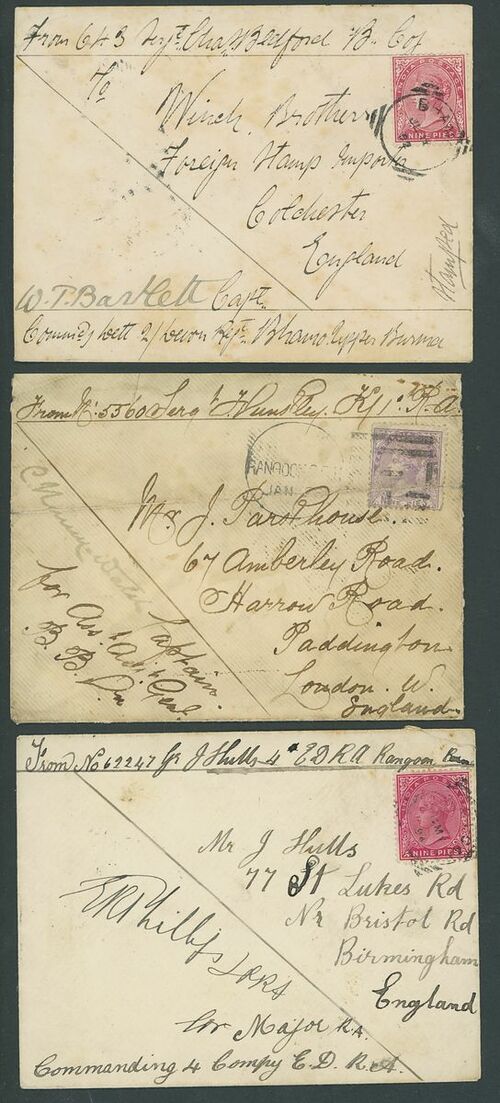 From 643 Sergt. Chas. Bedford B. Coy
To
INDIA POSTAGE
NINE PIES
Winch Brothers
Foreign Stamp Importers
Colchester
England
Stamped
W. T. Bartlett Capt.
Commdg Dett 2/Devon Regt. Bhamo. Upper Burma
From No: 5560 Sergt J. Hunstley. K/1. R.A.
RANGOON
JAN
Mr J. Parkhouse.
67 Amberley Road.
Harrow Road.
Paddington
London. W.
England.
Captain.
for Asst. Adjt. Genl.
B. B. Dn
From No 62247 Gr J Hulls 4 E D R A Rangoon
INDIA POSTAGE
NINE PIES
Mr J Hulls
77 St Lukes Rd
Nr Bristol Rd
Birmingham
England
E R Phillips
for Major R.A.
Commanding 4 Compy E.D. R.A.